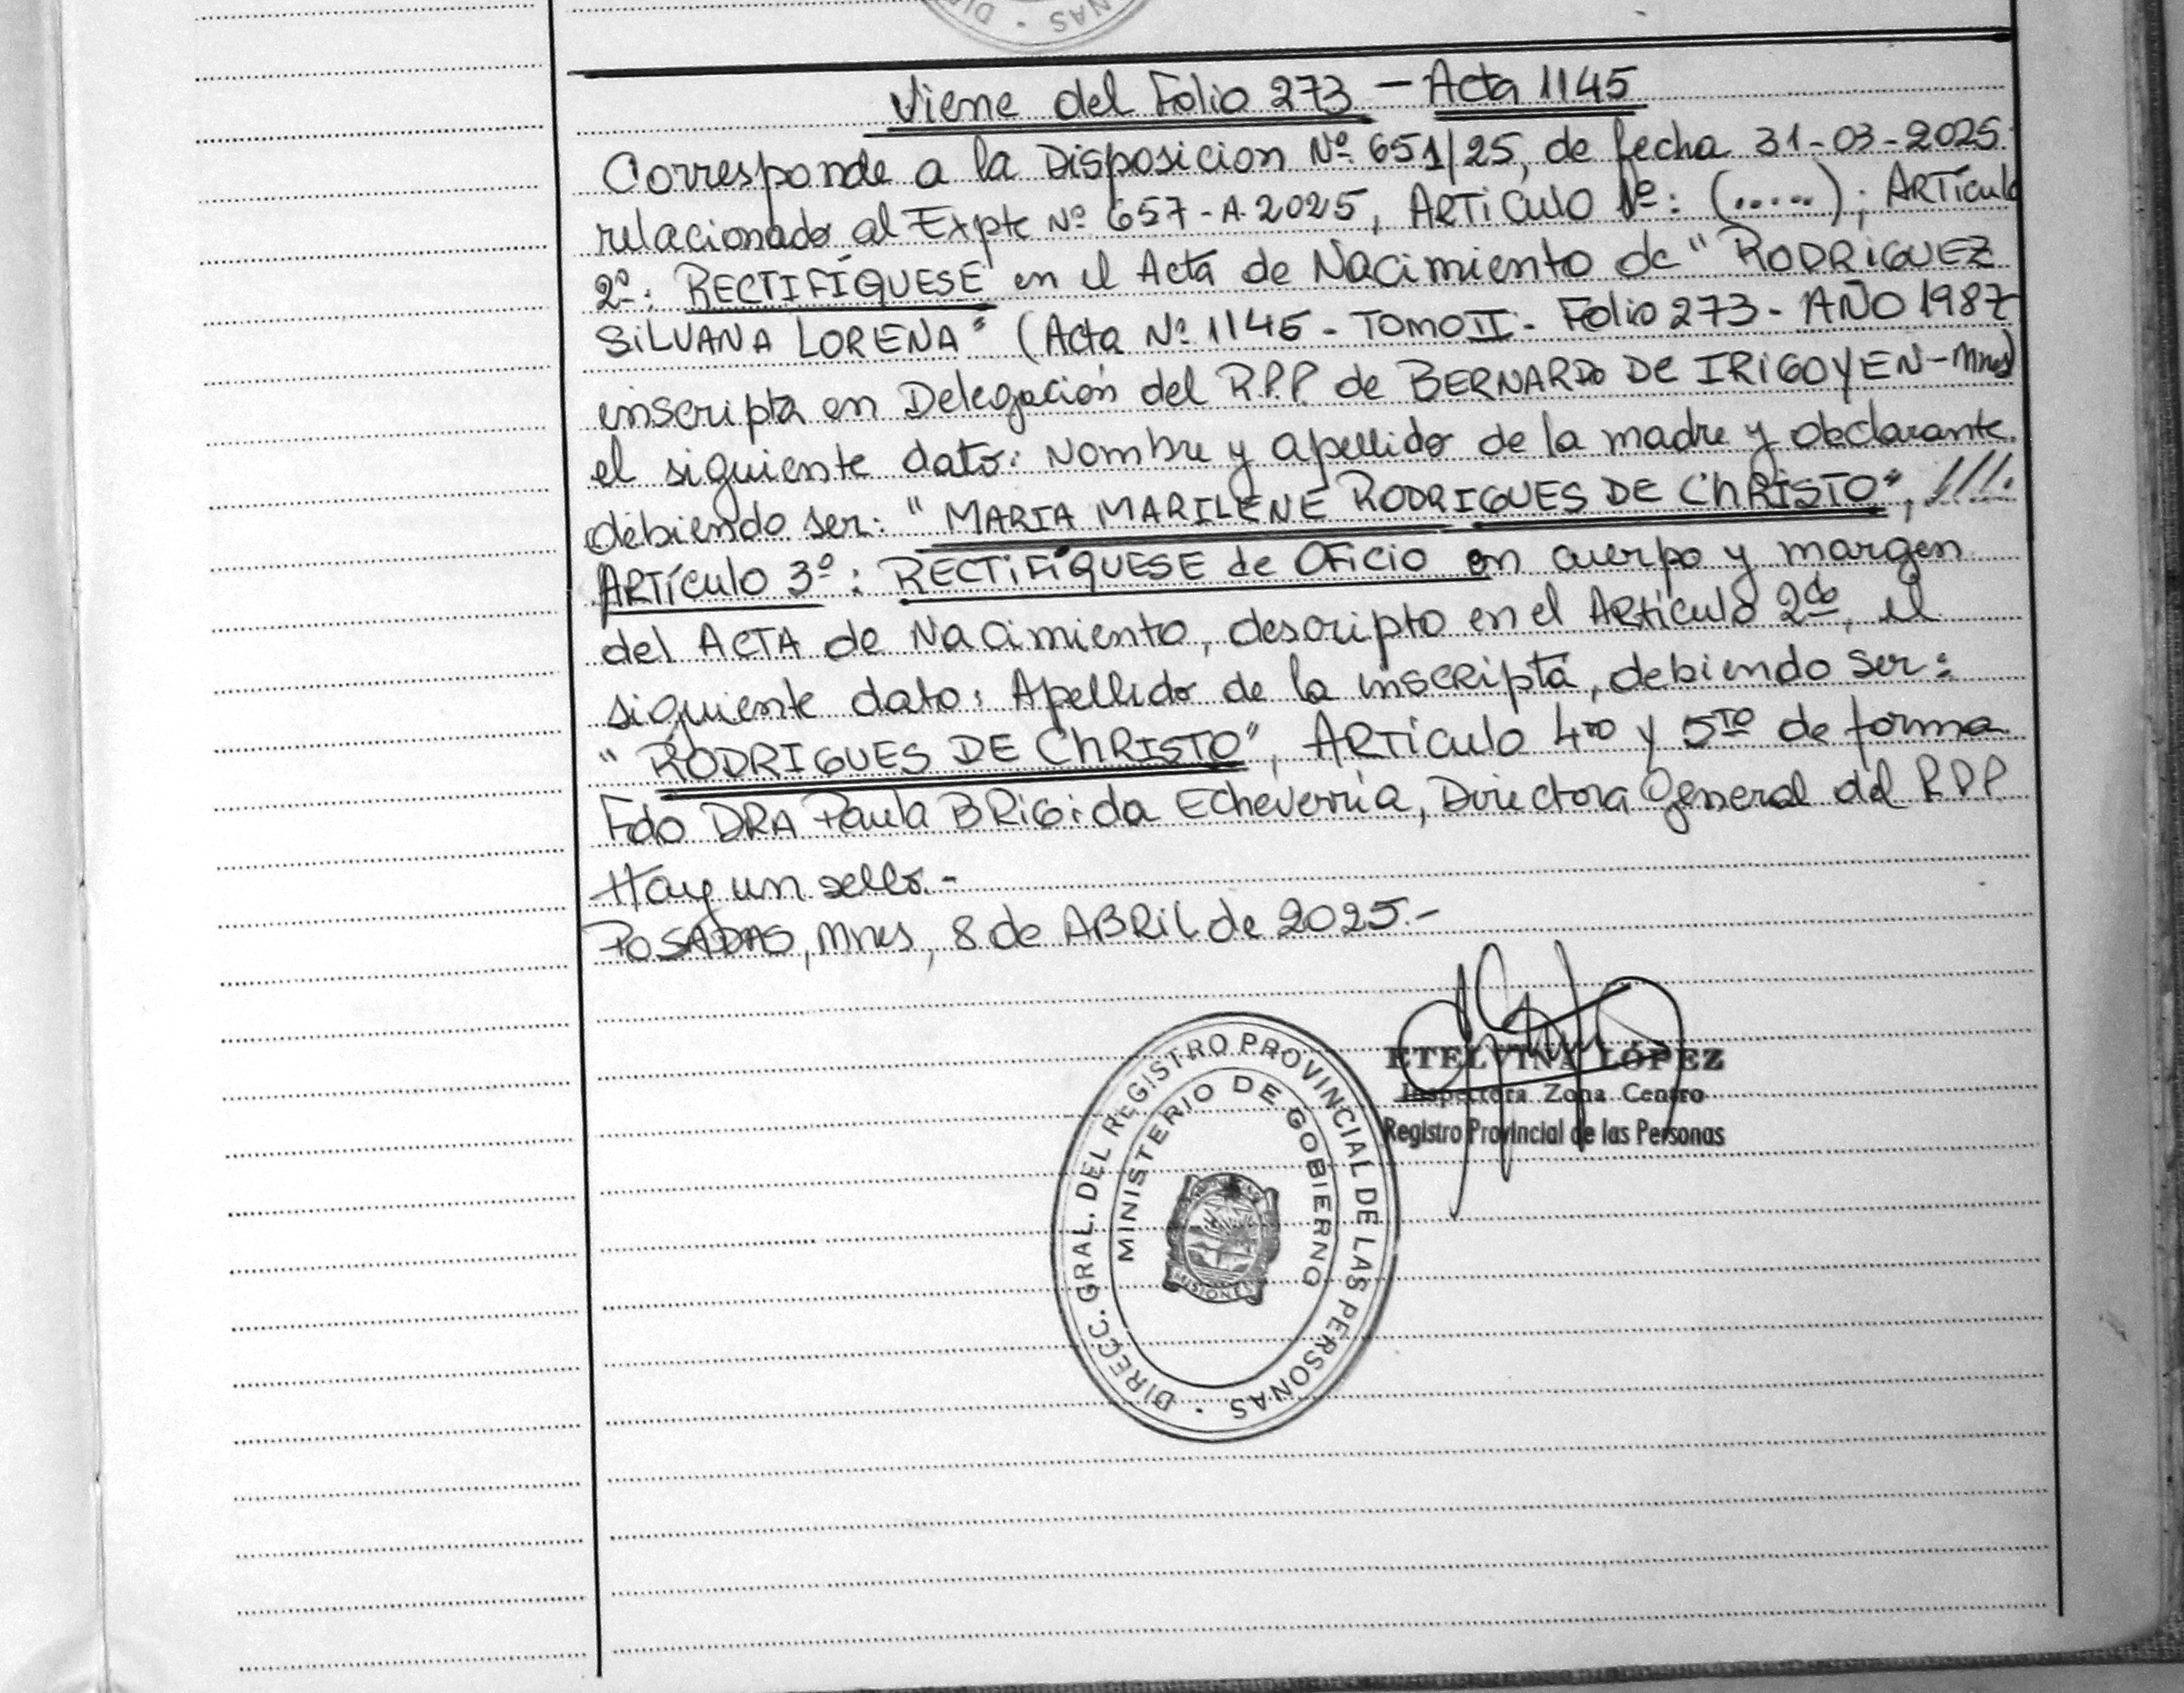 NAS · DI
Viene del Folio 273 - Acta 1145
Corresponde a la Disposicion Nº 651/25, de fecha 31-03-2025
relacionado al Expte Nº 657-A-2025, ARTICULO 1º: (.....); ARTículo
2º: RECTIFÍQUESE en el Acta de Nacimiento de "RODRIGUEZ
SILVANA LORENA" (Acta Nº 1145 - TOMO II - Folio 273 - AÑO 1987
inscripta en Delegación del R.P.P. de BERNARDO DE IRIGOYEN-Mnes)
el siguiente dato: Nombre y apellido de la madre y declarante,
debiendo ser: "MARIA MARILENE RODRIGUES DE ChRISTO", ///.
ARTÍCULO 3º: RECTIFÍQUESE de OFICIO en cuerpo y margen
del ACTA de Nacimiento, descripto en el Artículo 2do, el
siguiente dato: Apellido de la inscripta, debiendo ser:
"RODRIGUES DE ChRISTO", ARTÍCULO 4to y 5TO de forma
Fdo DRA Paula BRIGIda Echeverría, Directora General del RPP
Hay un sello.-
POSADAS, Mnes, 8 de ABRIL de 2025.-
ETELVINA LÓPEZ
Inspectora Zona Centro
Registro Provincial de las Personas
DIRECC. GRAL. DEL REGISTRO PROVINCIAL DE LAS PERSONAS ·
MINISTERIO DE GOBIERNO
MISIONES